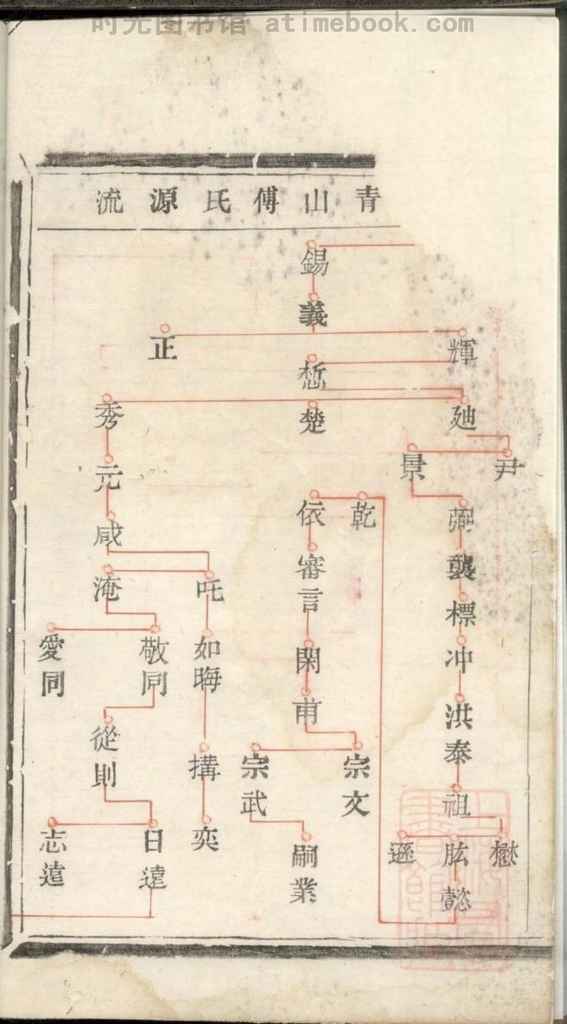 时光图书馆 atimebook.com
青山傅氏源流
錫
義
輝
正
悊
廸
楚
秀
尹
景
弼
襲
標
冲
洪泰
祖
懋
肱
遜
懿
乾
依
審言
閑
甫
宗文
宗武
嗣業
元
咸
吒
淹
如晦
構
奕
敬同
愛同
從則
日遠
志遠